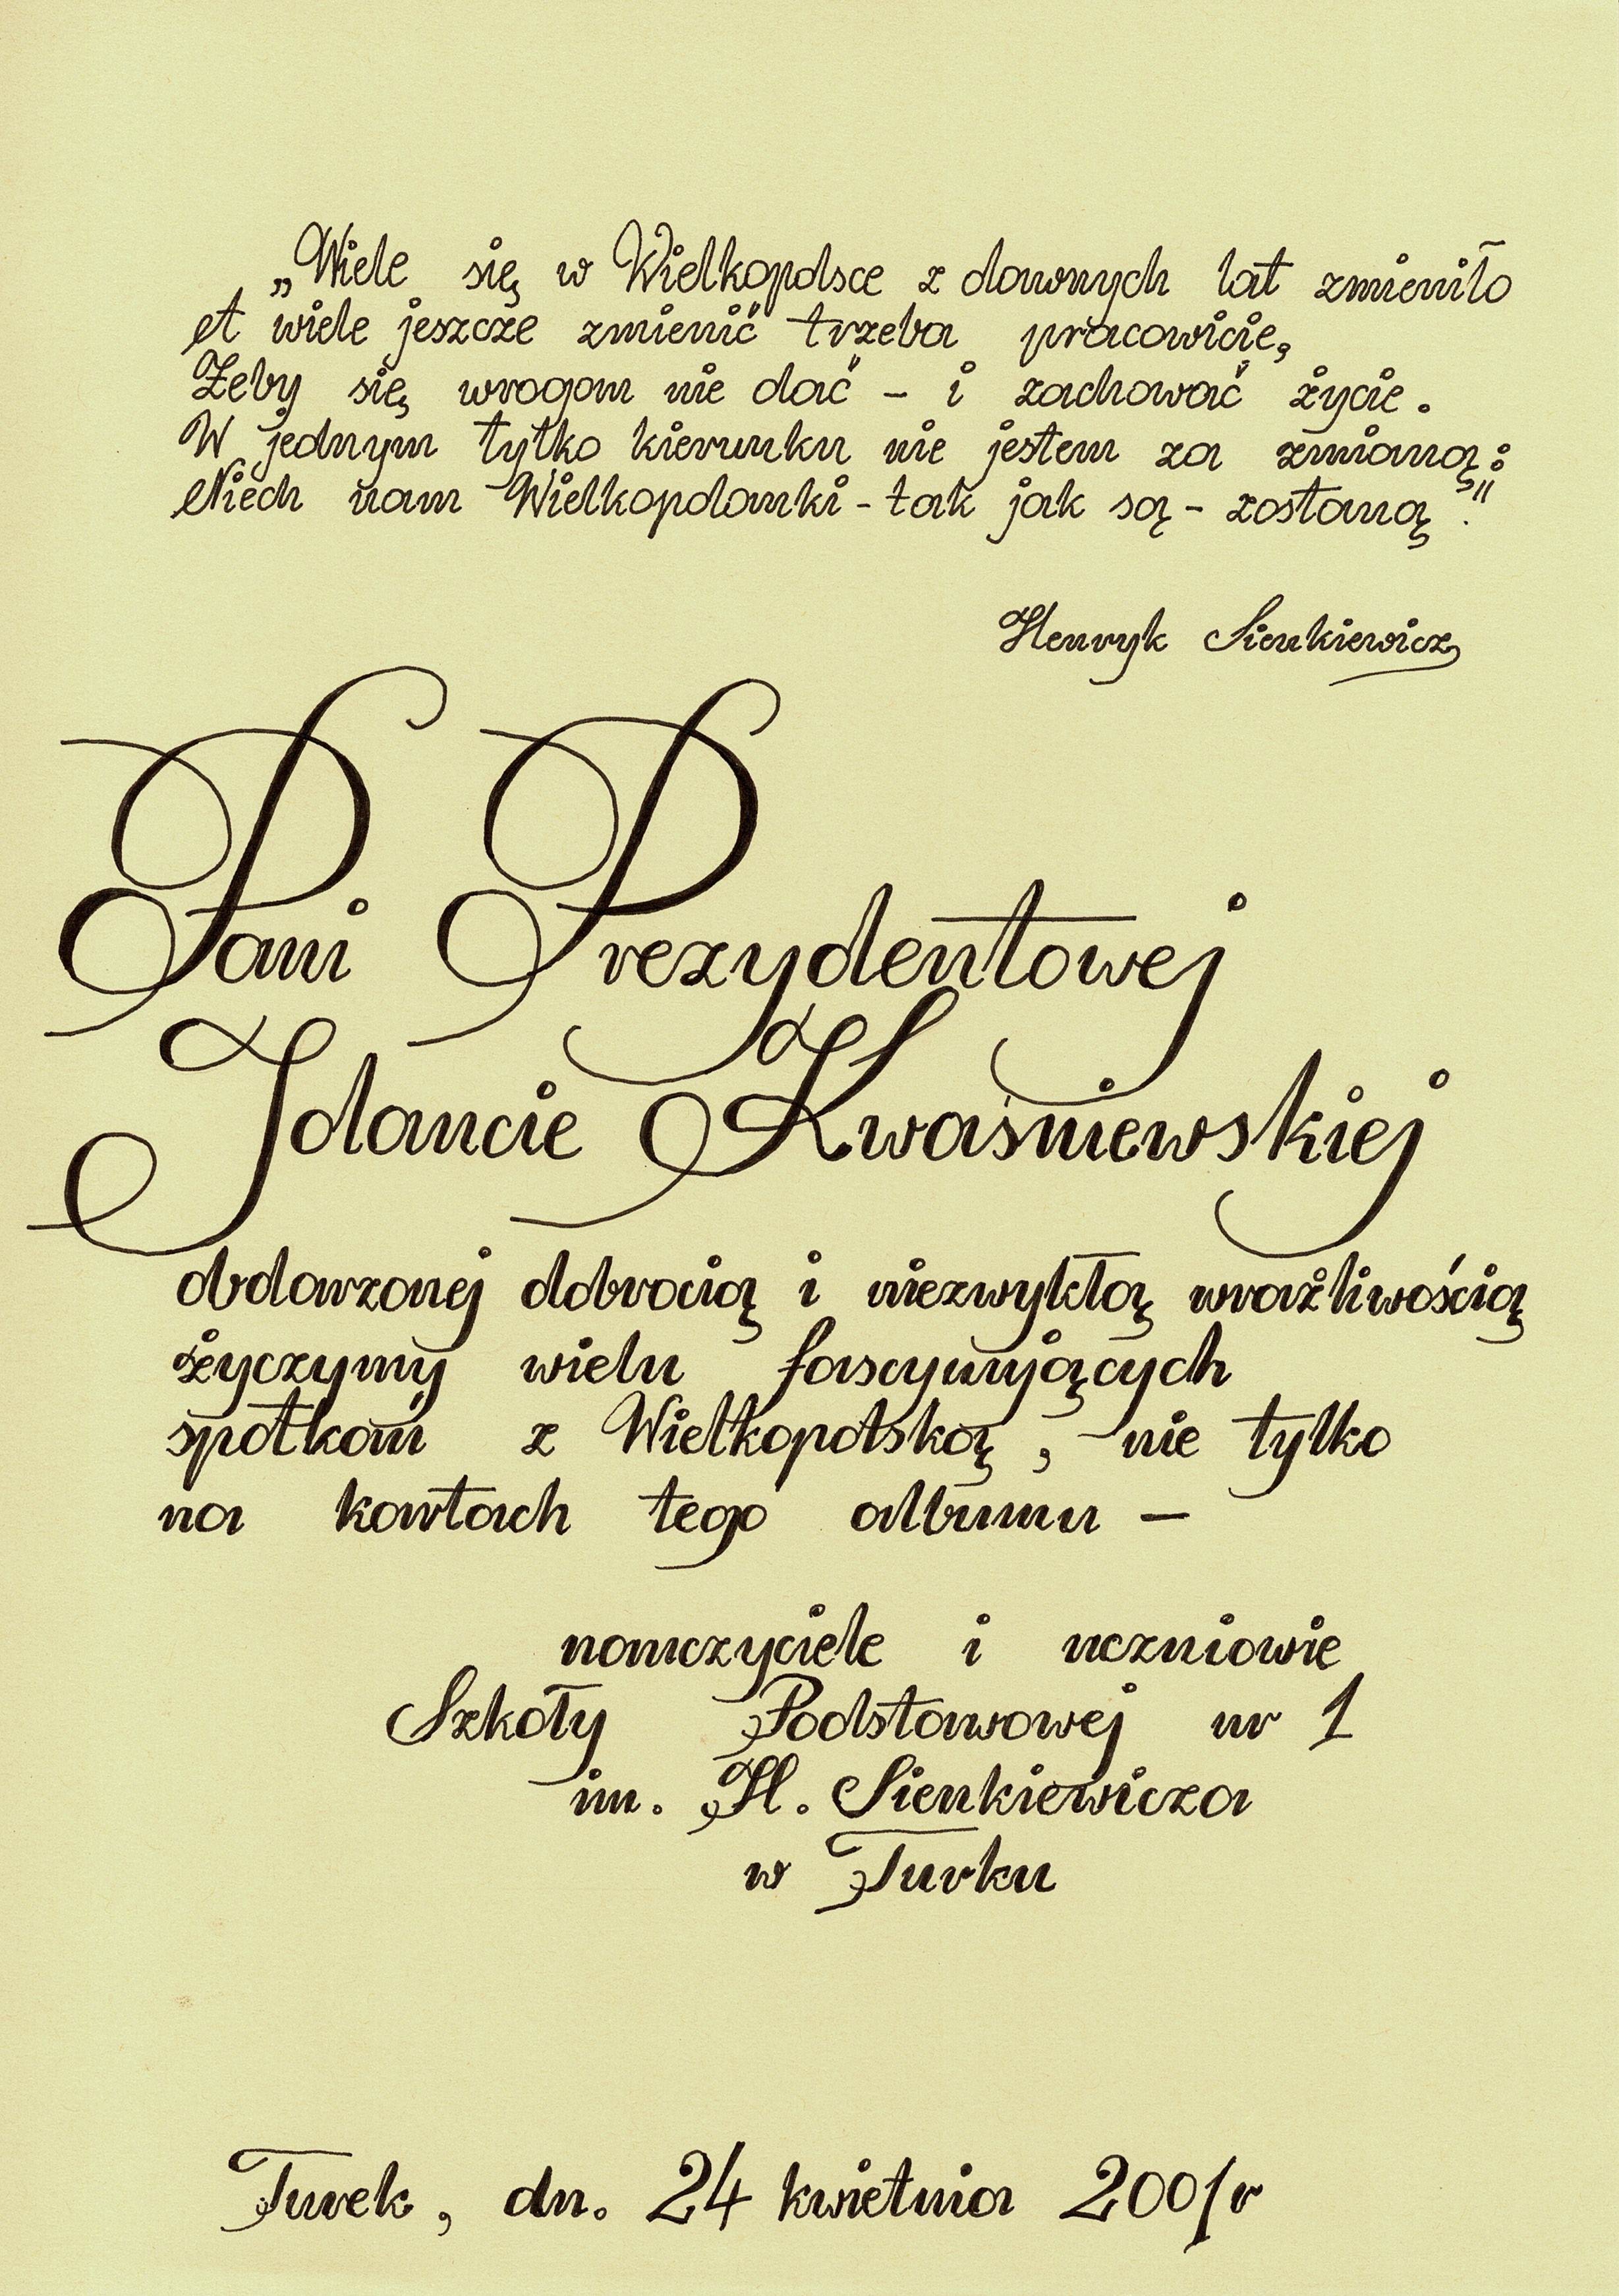 „Wiele się w Wielkopolsce z dawnych lat zmieniło
A wiele jeszcze zmienić trzeba pracowicie,
Żeby się wrogom nie dać - i zachować życie.
W jednym tylko kierunku nie jestem za zmianą:
Niech nam Wielkopolanki - tak jak są - zostaną."
Henryk Sienkiewicz
Pani Prezydentowej
Jolancie Kwaśniewskiej
obdarzonej dobrocią i niezwykłą wrażliwością
życzymy wielu fascynujących
spotkań z Wielkopolską, nie tylko
na kartach tego albumu -
nauczyciele i uczniowie
Szkoły Podstawowej nr 1
im. H. Sienkiewicza
w Turku
Turek, dn. 24 kwietnia 2001r